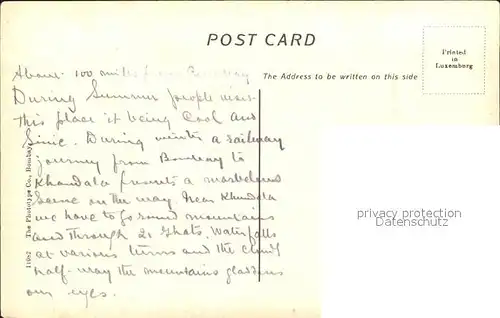 POST CARD
Printed
in
Luxemburg
The Address to be written on this side
About 100 miles from Bombay
During Summer people visit
this place it being Cool and
During winter a railway
journey from Bombay to
Khandala presents a marvelous
Scene on the way. Near Khandala
we have to go round mountains
and through 21 Ghats. Waterfalls
at various turns and the
half-way the mountains gladdens
our eyes.
11082 The Phototype Co., Bombay.
privacy protection
Datenschutz